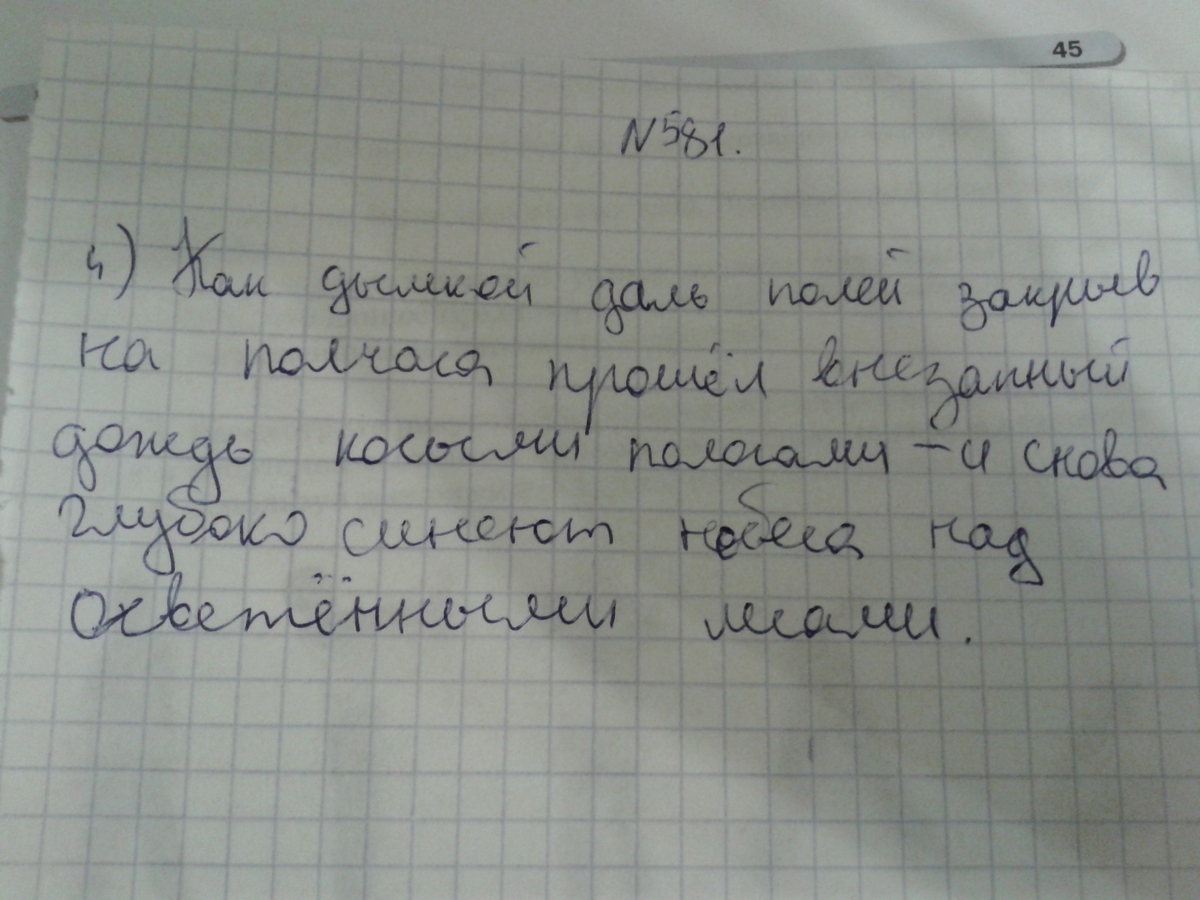 45
№581.
4) Как дымкой даль полей закрыв
на полчаса прошёл внезапный
дождь косыми пологами – и снова
глубоко синеют небеса над
Охветёнными лесами.